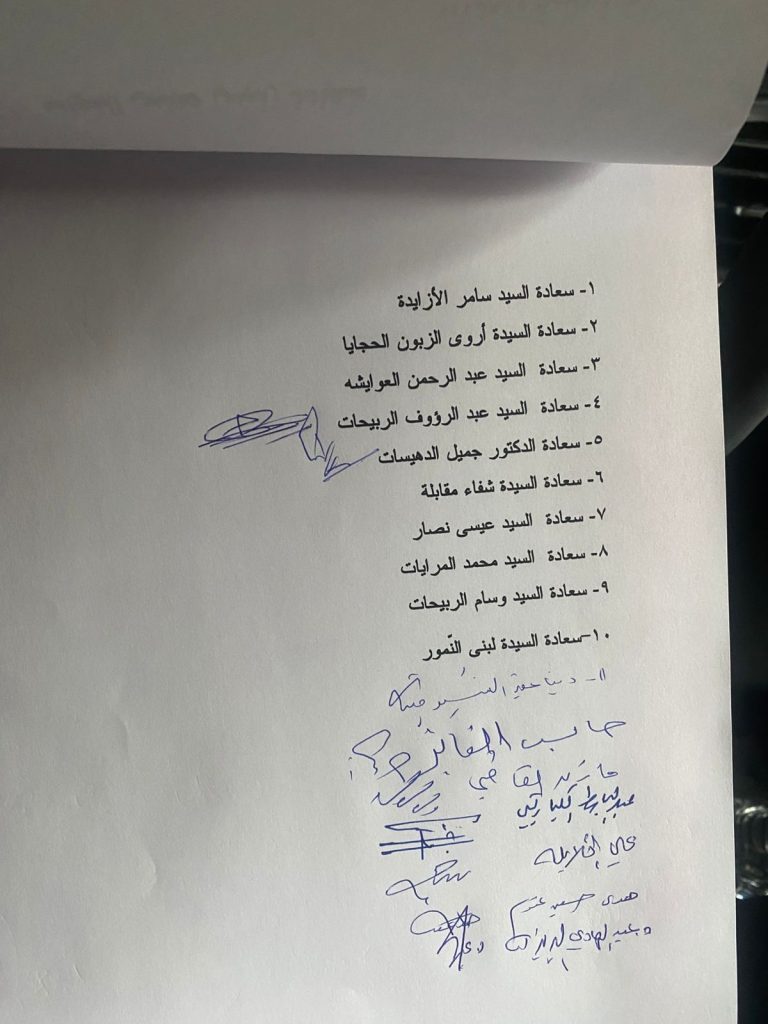 ١- سعادة السيد سامر الأزايدة
٢- سعادة السيدة أروى الزبون الحجايا
٣- سعادة السيد عبد الرحمن العوايشه
٤- سعادة السيد عبد الرؤوف الربيحات
٥- سعادة الدكتور جميل الدهيسات
٦- سعادة السيدة شفاء مقابلة
٧- سعادة السيد عيسى نصار
٨- سعادة السيد محمد المرايات
٩- سعادة السيد وسام الربيحات
١٠- سعادة السيدة لبنى النّمور
١١- دينا
الفايز
مازن القاضي
علي الخلايله
هدى حسين
عبد الهادي